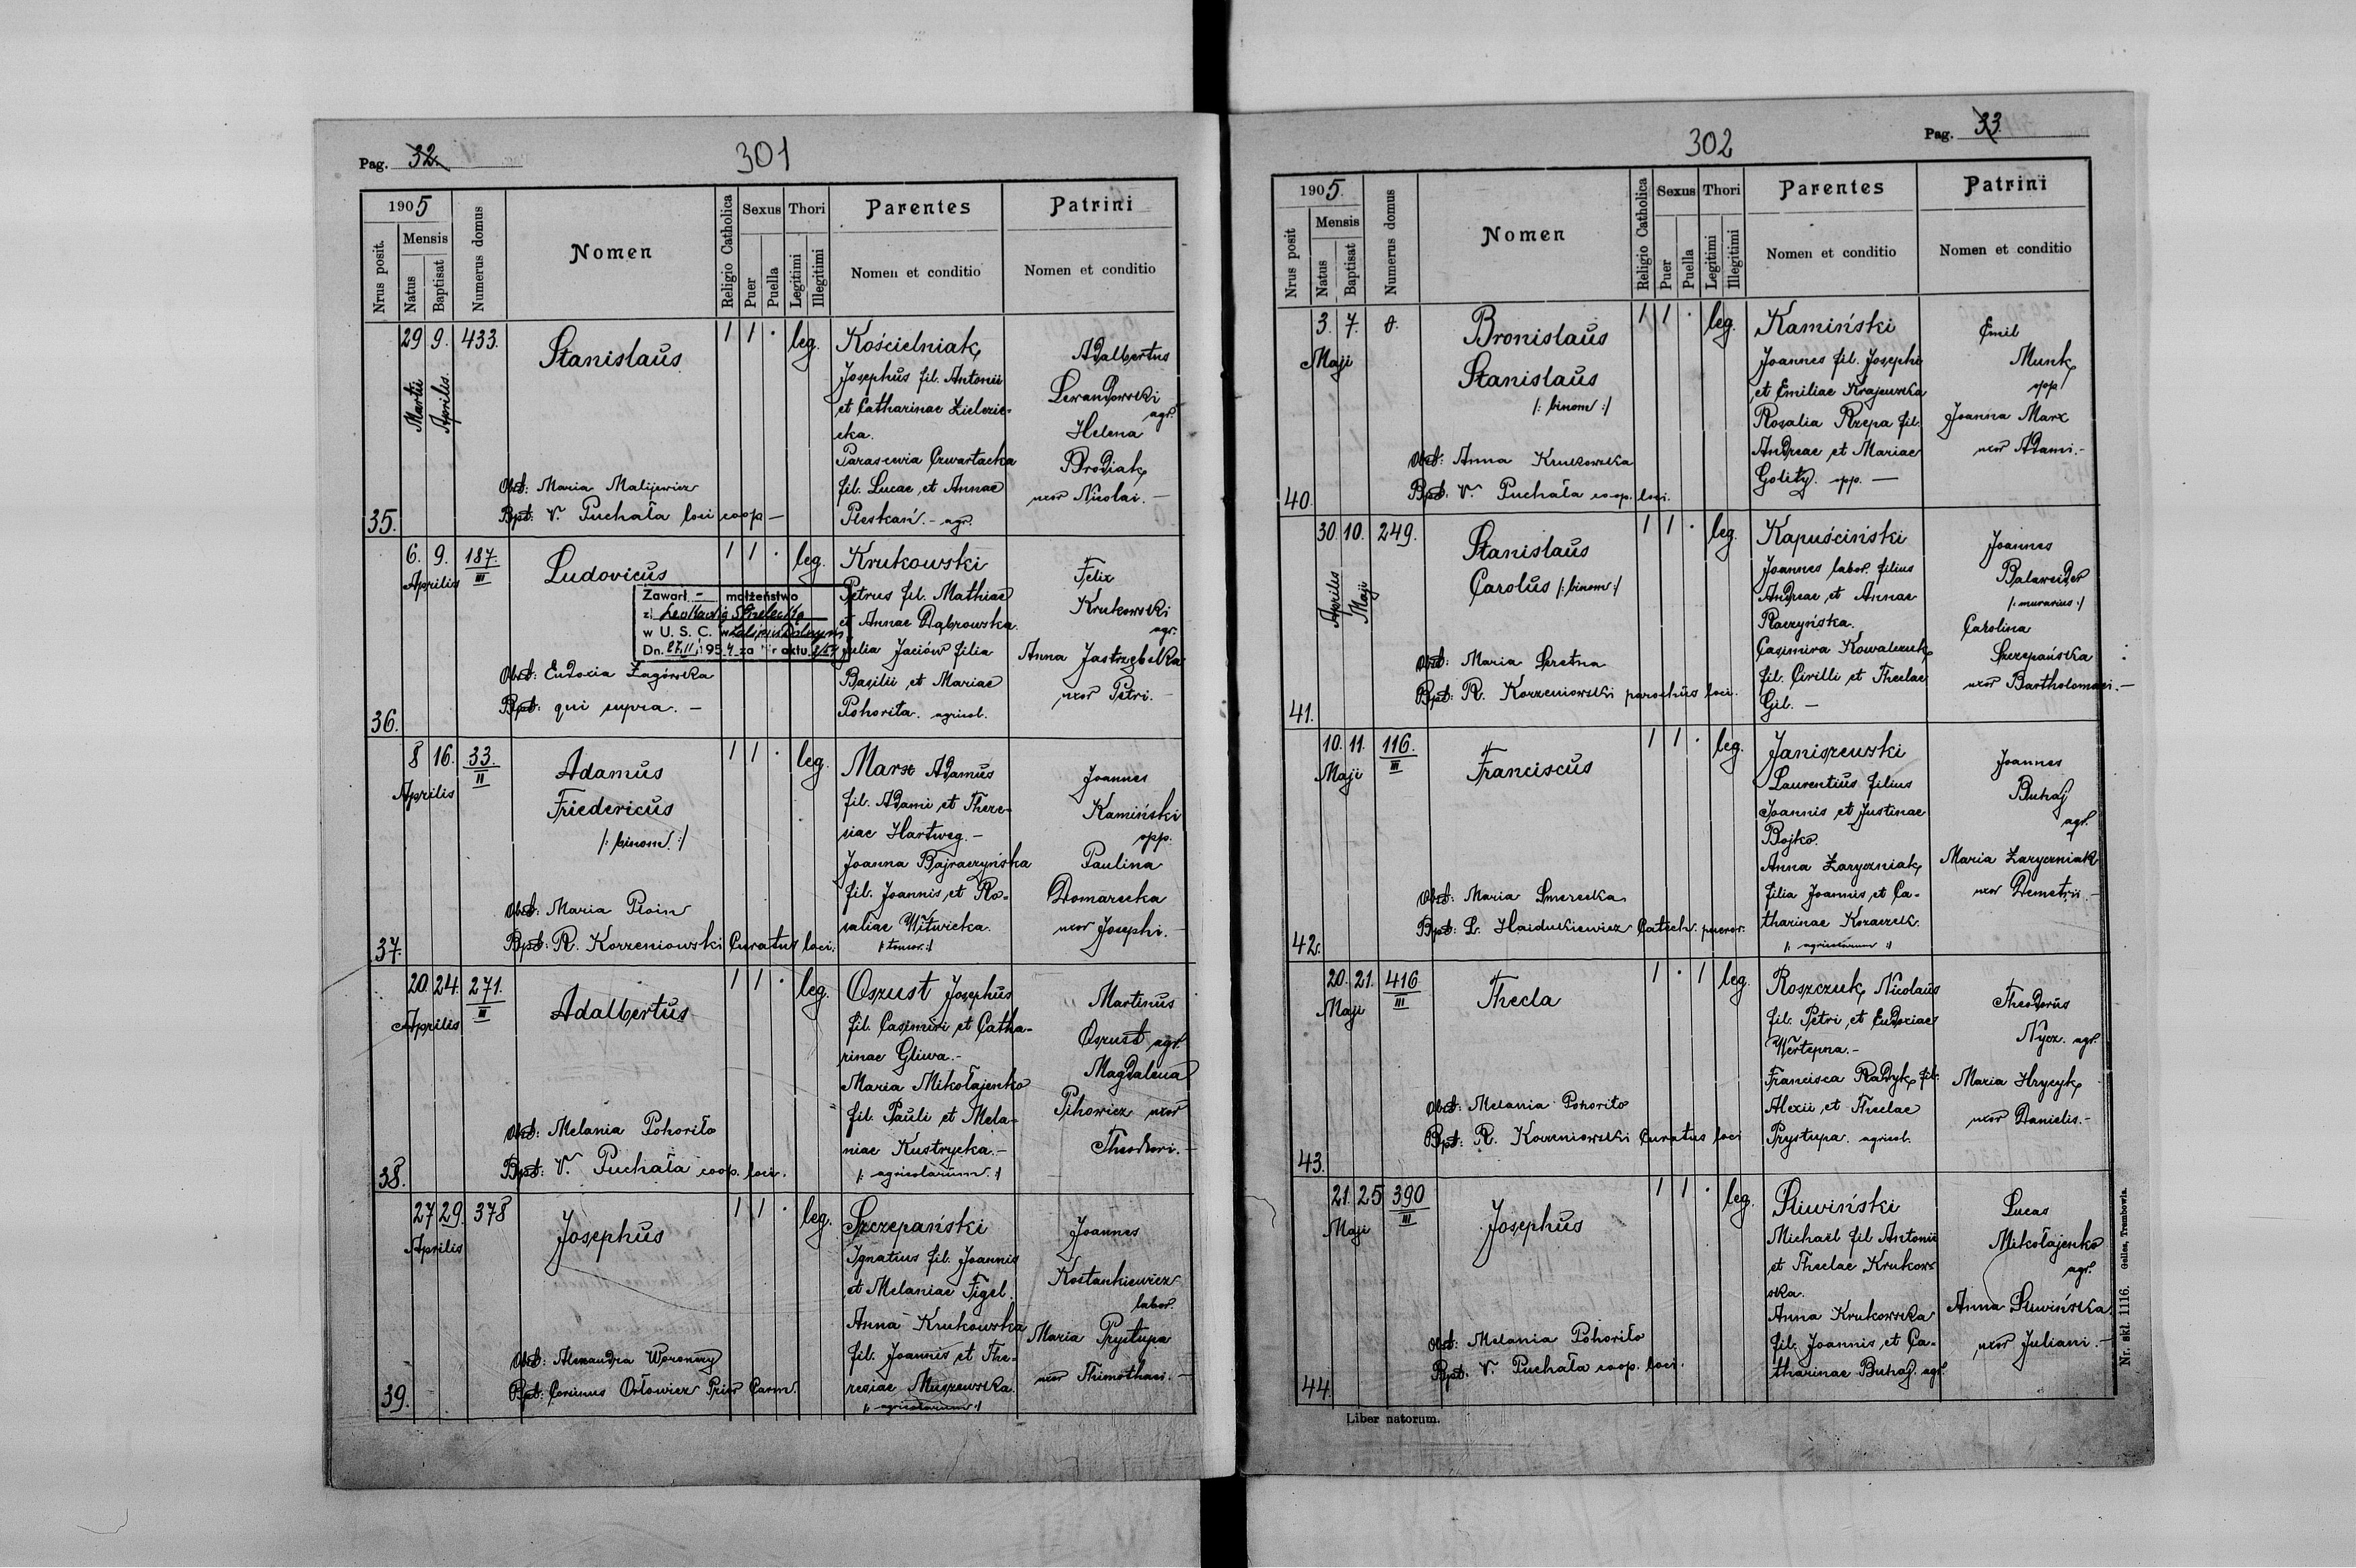 Pag. 32.
301
1905
Nrus posit.
Mensis
Natus
Baptisat
Numerus domus
Nomen
Religio Catholica
Sexus
Puer
Puella
Thori
Legitimi
Illegitimi
Parentes
Nomen et conditio
Patrini
Nomen et conditio
35.
29 9. 433.
Martii Aprilis.
Stanislaus
1 1 · leg.
Obst: Maria Malijewicz
Bpt: V. Puchała loci coop —
Kościelniak
Josephus fil. Antonii
et Catharinae
Parascevia Czwartacka
fil. Lucae et Annae
Pleskań. - agr.
Adalbertus
Lewandowski
agr.
Helena
Brodiak
uxor Nicolai. —
36.
6. 9. 187.
III
Aprilis
Ludovicus
1 1 · leg.
Zawarł - małżeństwo
z
w U. S. C. w
Dn. 27.II. 1954 za Nr aktu
Obst: Eudoxia Zagórska
Bpt: qui supra. —
Krukowski
Petrus fil. Mathiae
et Annae Dąbrowska.
Julia Jaciów filia
Basilii et Mariae
Pohorita. agricol.
Felix
Krukowski
agr.
Anna Jastrzębska
uxor Petri. —
37.
8 16. 33.
II
Aprilis
Adamus
Friedericus
/: binom. :/
1 1 · leg.
Obst: Maria
Bpt: R. Korzeniowski Curatus loci.
Marx Adamus
fil. Adami et There-
siae Hartweg. -
Joanna Bajraczyńska
fil. Joannis et Ro-
saliae Witwicka.
Joannes
Kamiński
opp.
Paulina
Domarecka
uxor Josephi. —
38.
20. 24. 271.
III
Aprilis
Adalbertus
1 1 · leg.
Obst: Melania Pohoriło
Bpt: V. Puchała coop. loci.
Oszust Josephus
fil. Casimiri et Catha-
rinae Gliwa. -
Maria Mikołajenko
fil. Pauli et Mela-
niae Kustrycka. -
/: agricolarum :/
Martinus
Oszust agr.
Magdalena
Pihowicz uxor
Theodori. —
39.
27 29. 378
Aprilis
Josephus
1 1 · leg.
Obst: Alexandra Woronny
Bpt: Orłowicz Prior Carm.
Szczepański
Ignatius fil. Joannis
et Melaniae Figel.
Anna Krukowska
fil. Joannis et The-
resiae Muszewska.
/: agricolarum :/
Joannes
Kostankiewicz
labor.
Maria Prystupa
uxor Thimothaei. —
302
Pag. 33.
1905.
Nrus posit
Mensis
Natus
Baptisat
Numerus domus
Nomen
Religio Catholica
Sexus
Puer
Puella
Thori
Legitimi
Illegitimi
Parentes
Nomen et conditio
Patrini
Nomen et conditio
40.
3. 7. 8.
Maji
Bronislaus
Stanislaus
/: binom :/
1 1 · leg.
Obst: Anna Krukowska
Bpt. V. Puchała coop. loci.
Kamiński
Joannes fil. Josephi
et Emiliae Krajewska
Rosalia Rzepa fil.
Andreae et Mariae
Golity. opp. —
Emil
Munk
opp.
Joanna Marx
uxor Adami. -
41.
30. 10. 249.
Aprilis Maji
Stanislaus
Carolus /: binom :/
1 1 · leg.
Obst: Maria
Bpt: R. Korzeniowski parochus loci.
Kapuściński
Joannes labor. filius
Andreae et Annae
Raczyńska.
Casimira Kowalczuk
fil. Cirilli et Theclae
Gil. —
Joannes
Balareider
/: murarius :/
Carolina
Szczepańska
uxor Bartholomaei. —
42.
10. 11. 116.
III
Maji
Franciscus
1 1 · leg.
Obst: Maria Smerecka
Bpt: L. Hajdukiewicz Catech. pueror.
Janiszewski
Laurentius filius
Joannis et Justinae
Bojko.
Anna Zaryczniak
filia Joannis et Ca-
tharinae Kozaczek.
/: agricolarum :/
Joannes
Buhaj
agr.
Maria Zaryczniak
uxor Demetrii. —
43.
20. 21. 416
III
Maji
Thecla
1 · 1 leg.
Obst: Melania Pohoriło
Bpt: R. Korzeniowski Curatus loci
Roszczuk Nicolaus
fil. Petri et Eudoxiae
Wertepna. -
Francisca Radyk fil.
Alexii et Theclae
Prystupa. agricol.
Theodorus
Nycz. agr.
Maria Hrycyk
uxor Danielis. -
44.
21. 25 390
III
Maji
Josephus
1 1 · leg.
Obst: Melania Pohoriło
Bpt. V. Puchała coop. loci.
Śliwiński
Michaël fil Antonii
et Theclae Krukow
ska.
Anna Krukowska
fil. Joannis et Ca-
tharinae Buhaj. agr.
Lucas
Mikołajenko
agr.
Anna Śliwińska
uxor Juliani. —
Liber natorum.
Nr. skł. 1116. Gelles, Trembowla.